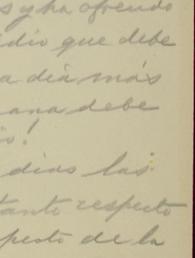 s y ha ofrendo
dio que debe
a dia más
ana debe
o!
dias las
tanto respecto
specto de la